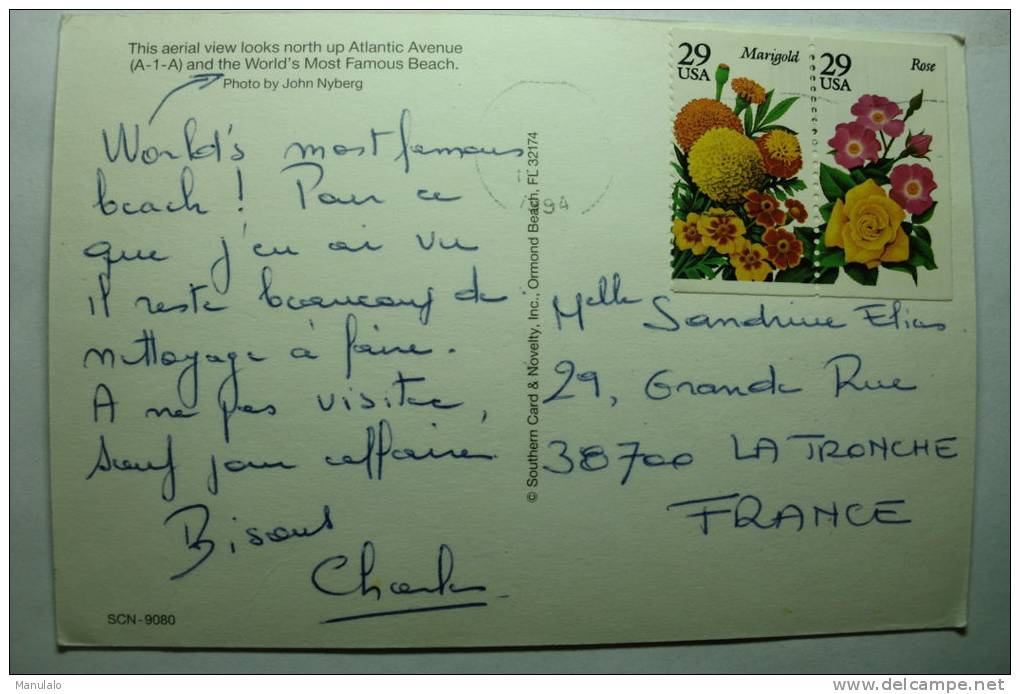 This aerial view looks north up Atlantic Avenue
(A-1-A) and the World's Most Famous Beach.
Photo by John Nyberg
World's most famous
beach! Pour ce
que j'en ai vu
il reste beaucoup de
nettoyage à faire.
A ne pas visiter,
sauf pour affaires
Bisous
Charles
SCN-9080
© Southern Card & Novelty, Inc., Ormond Beach, FL 32174
94
29
USA
Marigold
29
USA
Rose
Melle Sandrine Elias
29, Grande Rue
38700 LA TRONCHE
FRANCE
Manulalo
delcampe.net